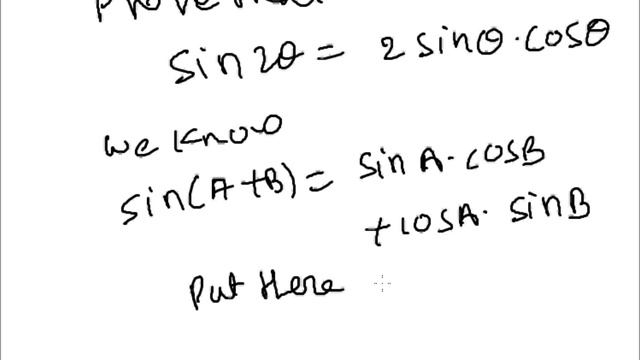 Prove that
sin 2θ = 2 sinθ · cosθ
we know
sin(A+B) = sin A · cosB
+ cosA · sinB
Put Here